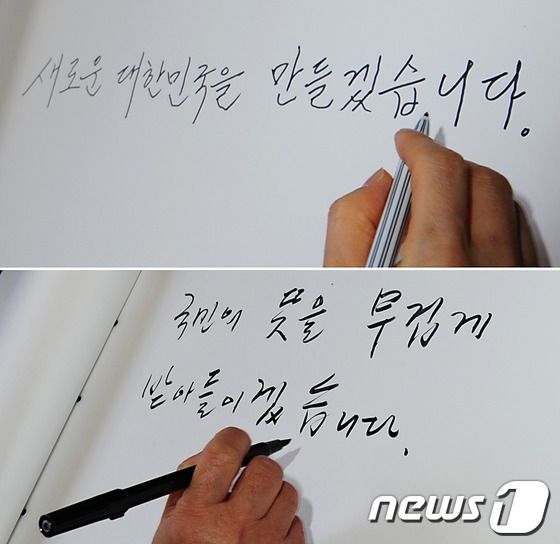 새로운 대한민국을 만들겠습니다.
국민의 뜻을 무겁게
받아들이겠습니다.
news1